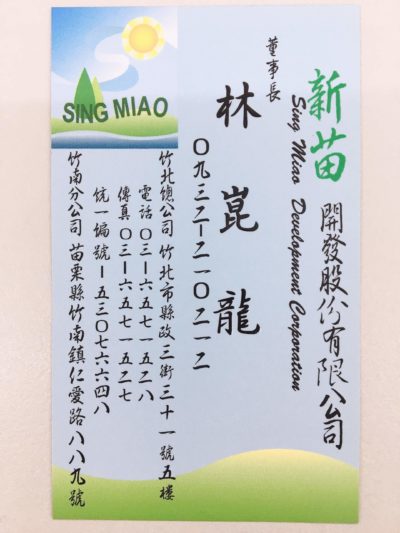 新苗 開發股份有限公司
Sing Miao Development Corporation
董事長
林崑龍
〇九三二-二一〇二一二
竹北總公司 竹北市縣政三街三十一號五樓
電話 〇三-六五七一五二八
傳真 〇三-六五七一五二七
統一編號-五三〇七六六四八
竹南分公司 苗栗縣竹南鎮仁愛路八八九號
SING MIAO